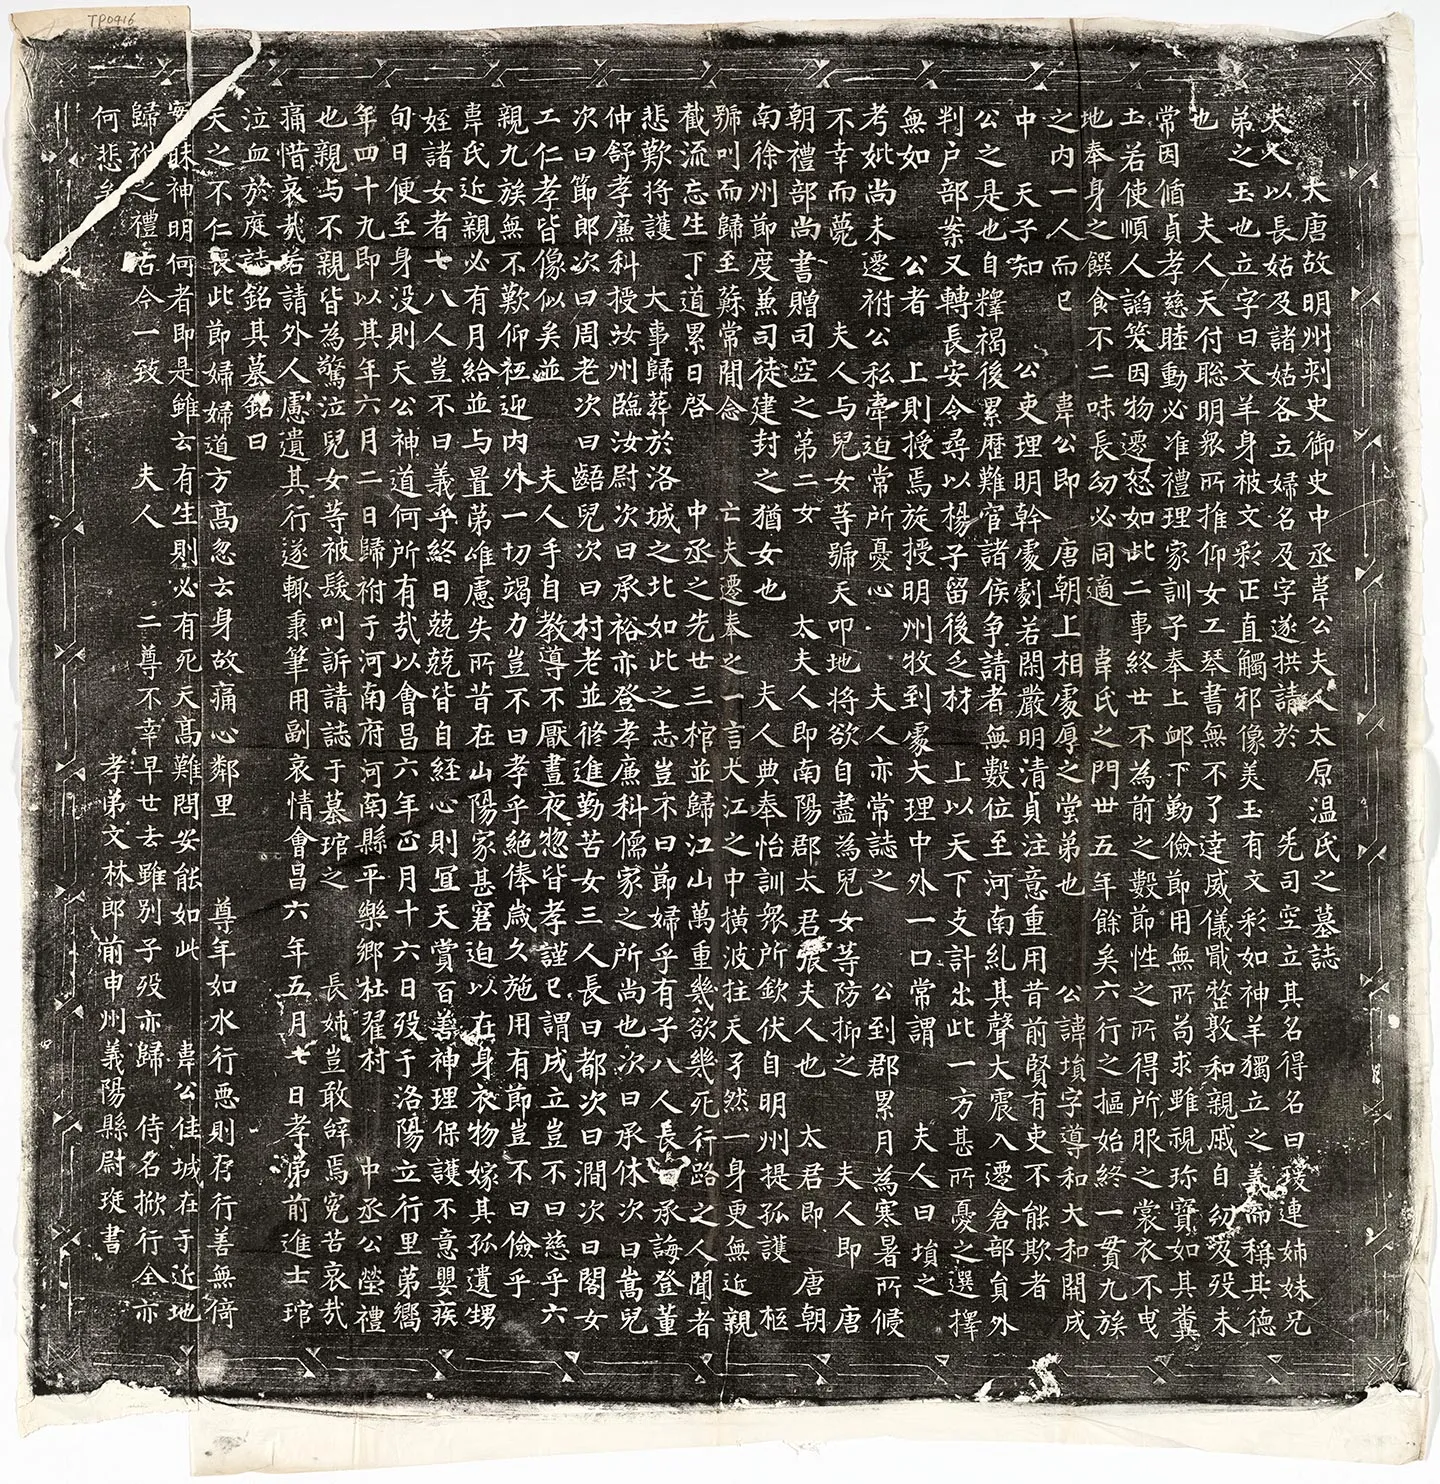 TP0416
大唐故明州刾史御史中丞韋公夫人太原温氏之墓誌
夫人以長姑及諸姑各立婦名及字遂拱請於 先司空立其名得名曰瑗連姉妹兄
弟之玉也立字曰文羊身被文彩正直觸邪像美玉有文彩如神羊獨立之義而稱其德
也 夫人天付聡明衆所推仰女工琴書無不了達威儀戢整敦和親戚自幼及殁未
常因循貞孝慈睦動必准禮理家訓子奉上卹下勤儉節用無所苟求雖視珎寶如其糞
土若使順人謟笑因物遷怒如此二事終世不為前之數節性之所得所服之裳衣不曳
地奉身之饌食不二味長幼必同適 韋氏之門廿五年餘矣六行之摳始終一貫九族
之内一人而已 韋公即 唐朝上相處厚之堂弟也 公諱塤字導和大和開成
中 天子知 公吏理明幹處劇若閑嚴明清貞注意重用昔前賢有吏不能欺者
公之是也自釋褐後累歷難官諸侯争請者無數位至河南糺其聲大震入遷倉部員外
判户部案又轉長安令尋以楊子留後乏材 上以天下支計出此一方甚所憂之選擇
無如 公者 上則授焉旋授明州牧到處大理中外一口常謂 夫人曰塤之
考妣尚未遷祔公私牽迫常所憂心 夫人亦常誌之 公到郡累月為寒暑所候
不幸而薨 夫人与兒女等號天叩地将欲自盡為兒女等防抑之 夫人即 唐
朝禮部尚書贈司空之第二女 太夫人即南陽郡太君張夫人也 太君即 唐朝
南徐州節度兼司徒建封之猶女也 夫人典奉怡訓衆所欽伏自明州提孤護 柩
號叫而歸至蘇常間念 亡夫遷奉之一言犬江之中横波拄天孑然一身更無近親
截流忘生下道累日啓 中丞之先世三棺並歸江山萬重幾欲幾死行路之人聞者
悲歎将護 大事歸葬於洛城之北如此之志豈不曰節婦乎有子八人長曰承誨登董
仲舒孝廉科授汝州臨汝尉次曰承裕亦登孝廉科儒家之所尚也次曰承休次曰嵩兒
次曰節郎次曰周老次曰龆兒次曰村老並修進勤苦女三人長曰都次曰澗次曰閣女
工仁孝皆像似矣並 夫人手自教導不厭晝夜惣皆孝謹已謂成立豈不曰慈乎六
親九族無不歎仰袛迎内外一切竭力豈不曰孝乎絶俸歲久施用有節豈不曰儉乎
韋氏近親必有月給並与量弟唯慮失所昔在山陽家甚窘迫以在身衣物嫁其孤遺甥
姪諸女者七八人豈不曰義乎終日兢兢皆自經心則冝天賞百善神理保護不意嬰疾
旬日便至身没則天公神道何所有㢤以會昌六年正月十六日殁于洛陽立行里第嚮
年四十九即以其年六月二日歸祔于河南府河南縣平樂鄉杜翟村 中丞公塋禮
也親与不親皆為驚泣兒女等被髮叫訴請誌于墓琯之 長姉豈敢辞焉冤苦哀㢤
痛惜哀㢤若請外人慮遺其行遂輙秉筆用副哀情會昌六年五月七日孝弟前進士琯
泣血於庭誌銘其墓銘曰
天之不仁喪此節婦婦道方髙忽云身故痛心鄰里 尊年如水行惡則存行善無倚
寃昧神明何者即是雖云有生則必有死天髙難問安能如此 韋公佳城在于近地
歸祔之禮古今一致 夫人 二尊不幸早世去雖别子殁亦歸 侍名掀行全亦
何悲矣 孝弟文林郎前申州義陽縣尉琰書